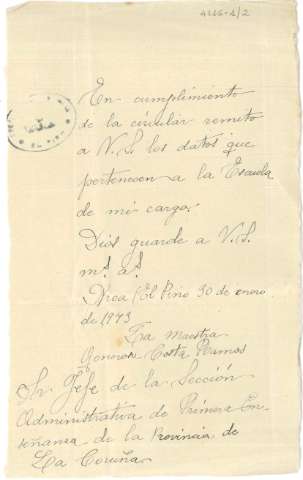 4265-2/2
En cumplimiento
de la circular remito
a V.S. los datos que
pertenecen a la Escuela
de mi cargo.
Dios guarde a V.S.
m.s a.s
Arca (El Pino) 30 de enero
de 1943
La maestra
Generosa Costa Ramos
Sr. Jefe de la Sección
Administrativa de Primera En-
señanza de la Provincia de
La Coruña